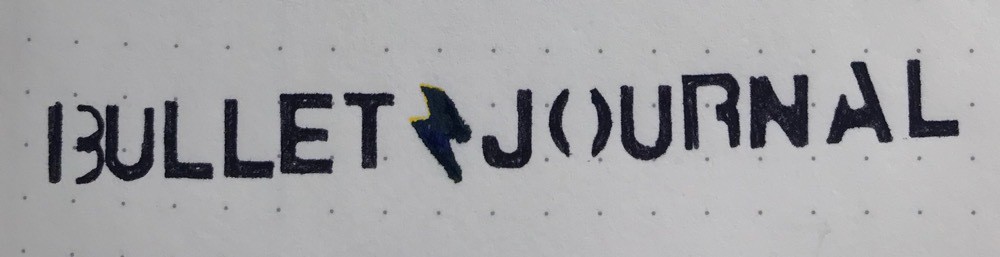 BULLET JOURNAL